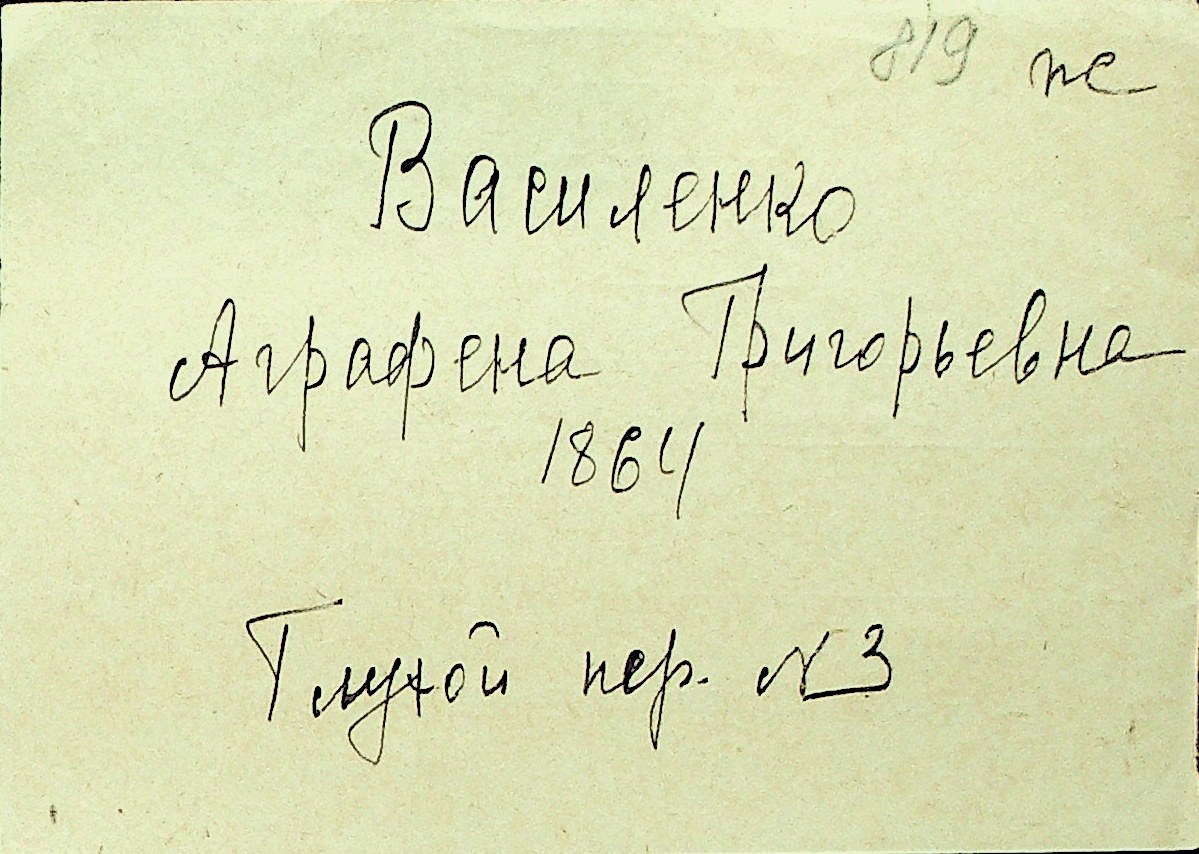 819 пс
Василенко
Аграфена Григорьевна
1864
Глухой пер. №3